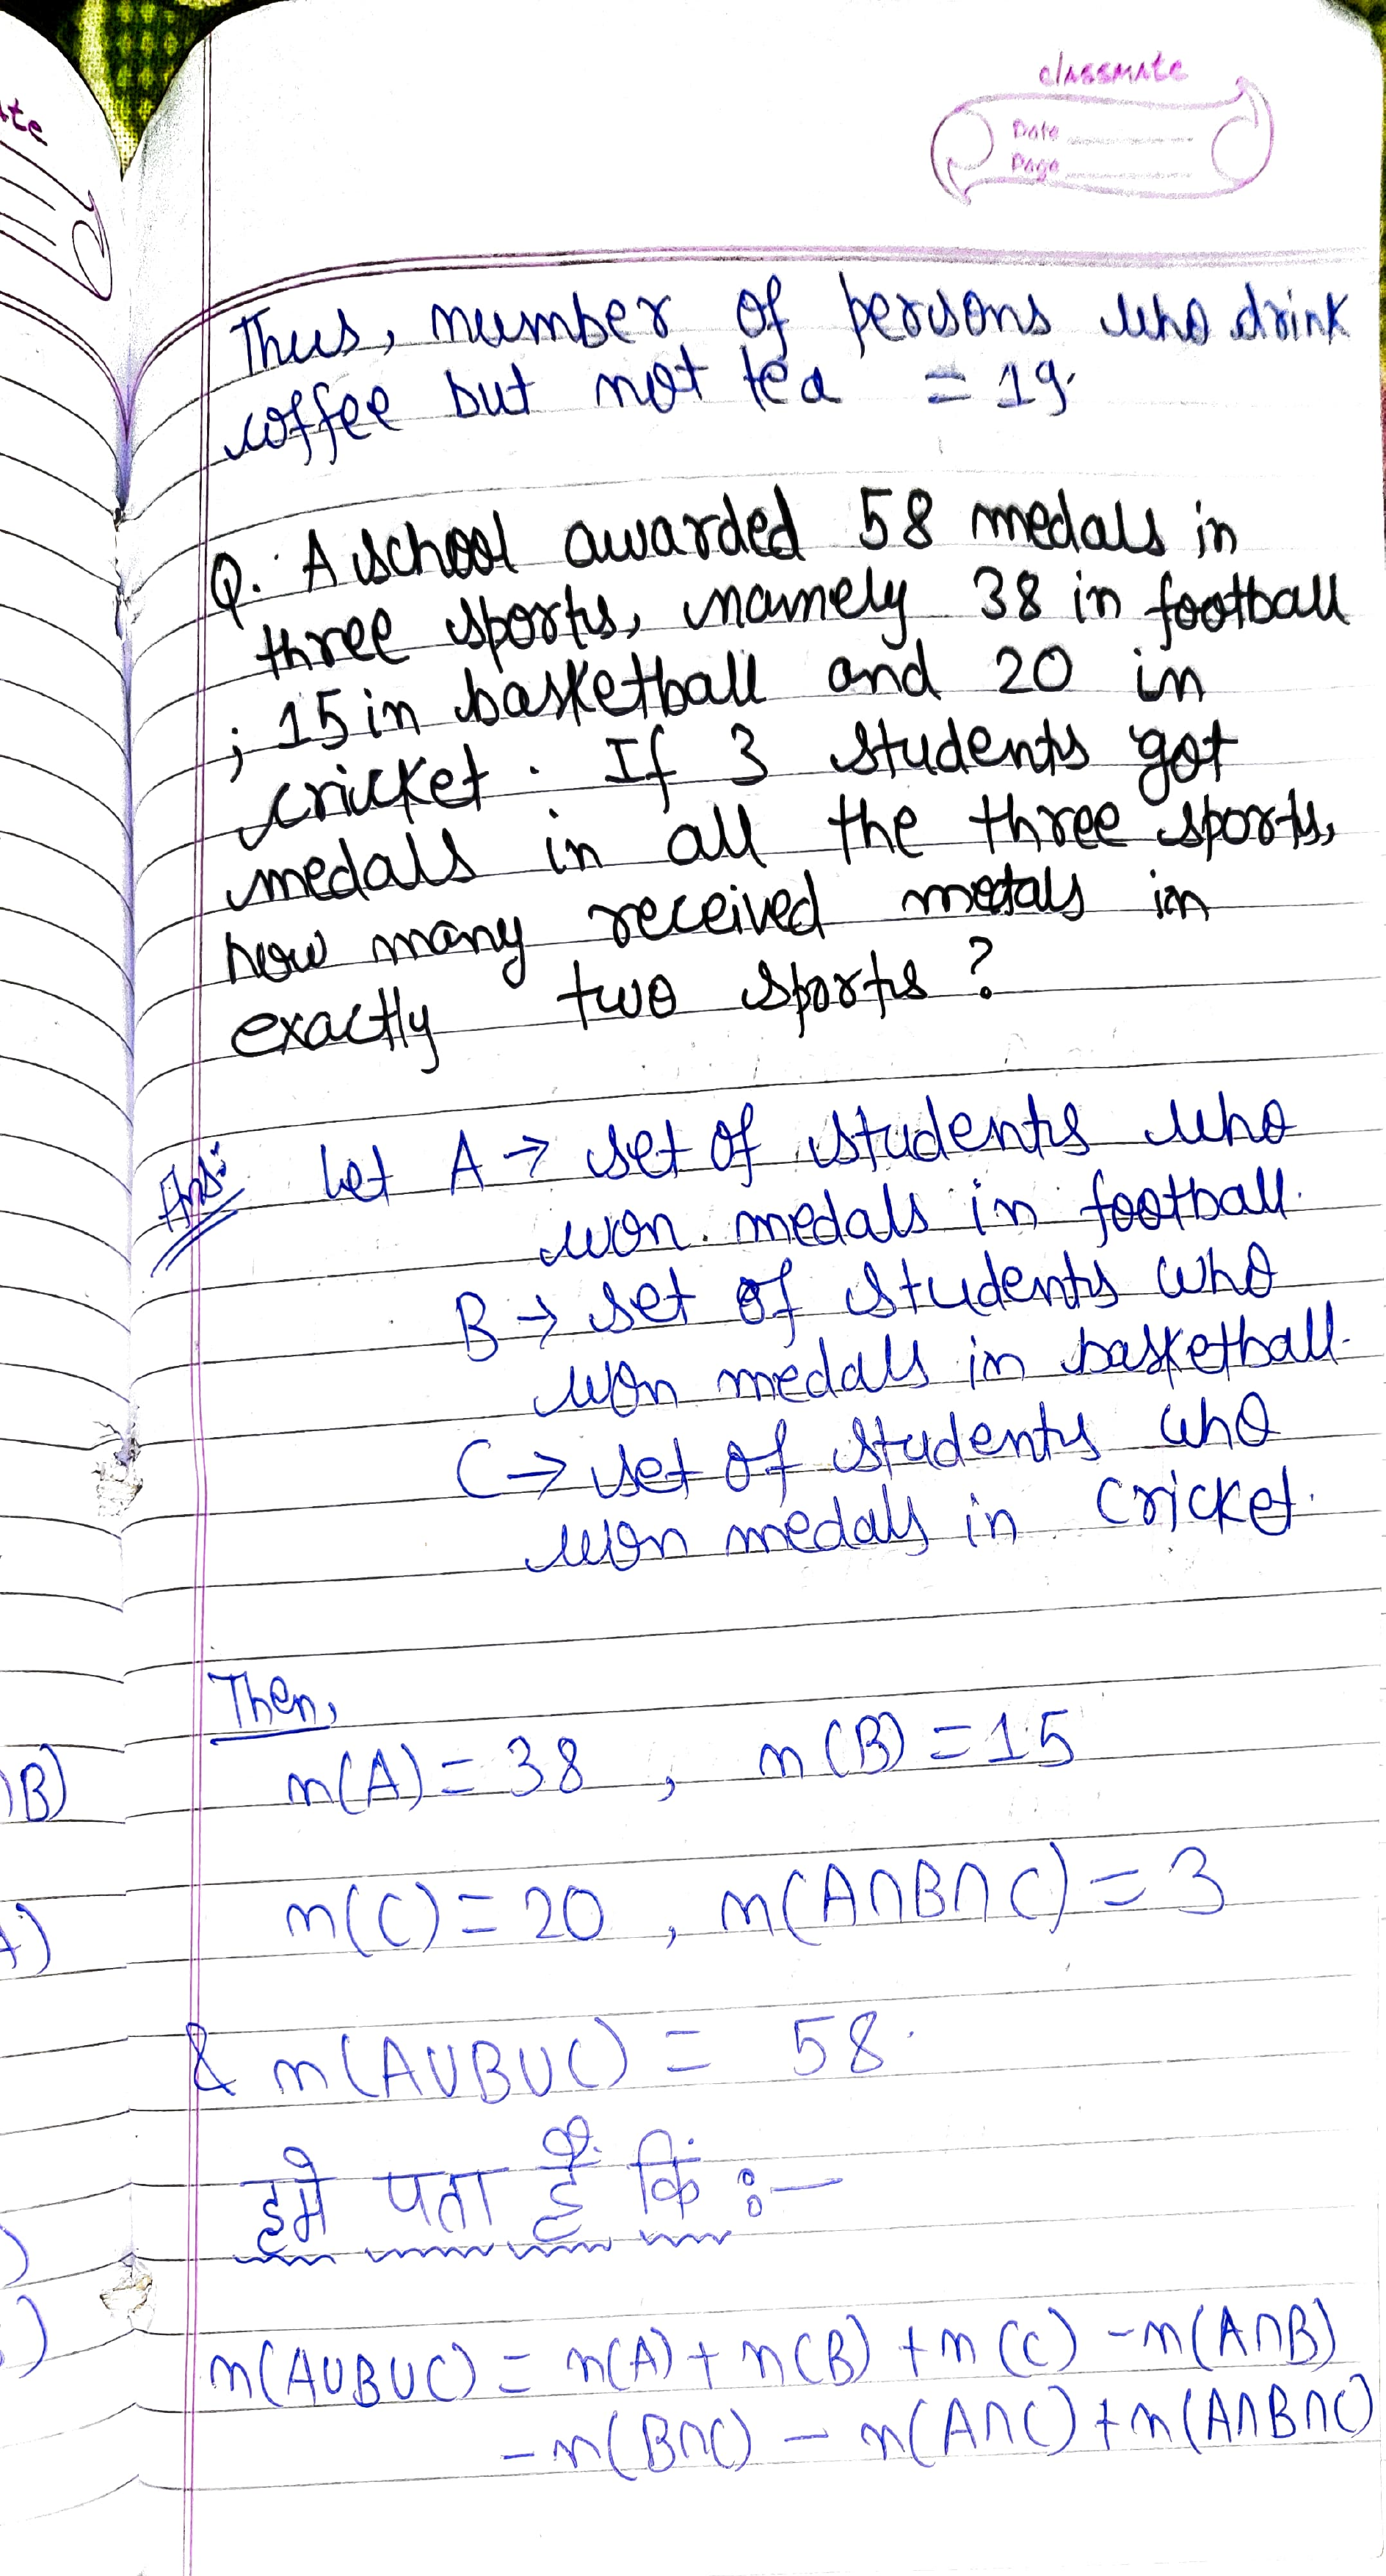 classmate
Date
Page
te
Thus, number of persons who drink
coffee but not tea = 19.
Q. A school awarded 58 medals in
three sports, namely 38 in football
; 15 in basketball and 20 in
cricket. If 3 students got
medals in all the three sports,
how many received metals in
exactly two sports?
Ans: Let A → set of students who
won medals in football.
B → set of students who
won medals in basketball.
C → set of students who
won medals in Cricket.
Then,
n(A) = 38 , n(B) = 15
B)
n(C) = 20 , n(A∩B∩C) = 3
)
& n(A∪B∪C) = 58.
हमे पता है कि :-
)
)
n(A∪B∪C) = n(A) + n(B) + n(C) - n(A∩B)
- n(B∩C) - n(A∩C) + n(A∩B∩C)